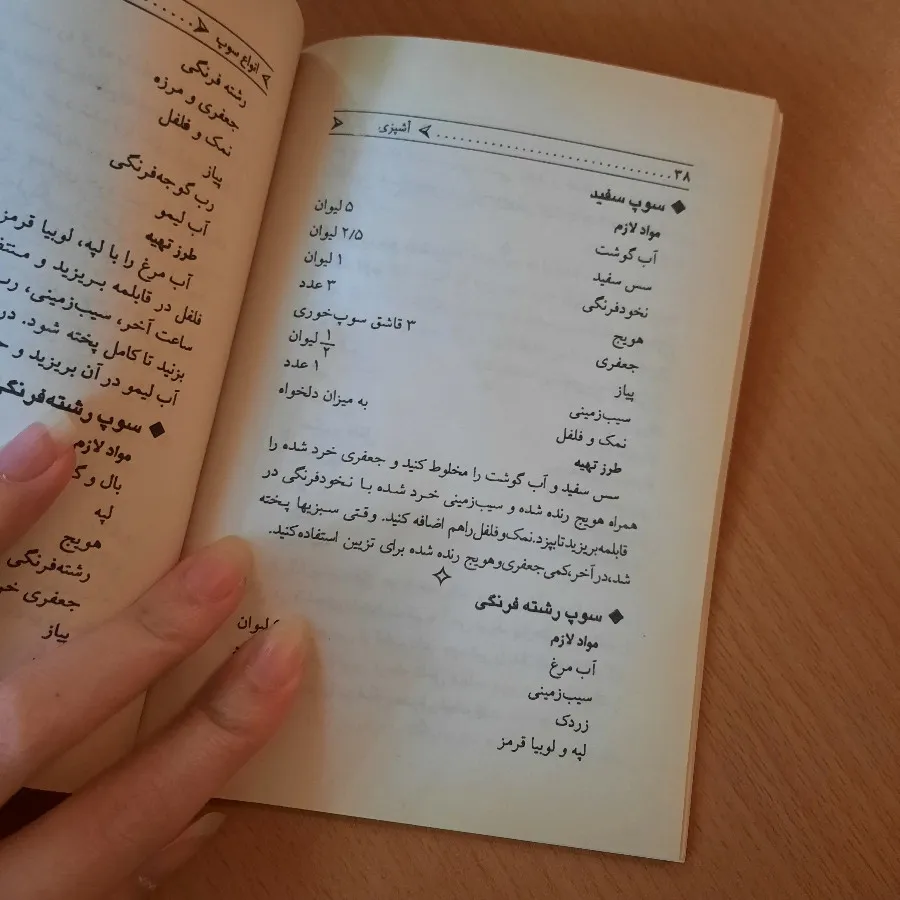 ۳۸ آشپزی
سوپ سفید
مواد لازم
آب گوشت ۵ لیوان
سس سفید ۲/۵ لیوان
نخودفرنگی ۱ لیوان
هویج ۳ عدد
جعفری ۳ قاشق سوپ‌خوری
پیاز ۱/۲ لیوان
سیب‌زمینی ۱ عدد
نمک و فلفل به میزان دلخواه
طرز تهیه
سس سفید و آب گوشت را مخلوط کنید و جعفری خرد شده را
همراه هویج رنده شده و سیب‌زمینی خرد شده با نخودفرنگی در
قابلمه بریزید تا بپزد. نمک و فلفل را هم اضافه کنید. وقتی سبزیها پخته
شد، در آخر، کمی جعفری و هویج رنده شده برای تزیین استفاده کنید.
سوپ رشته فرنگی
مواد لازم
آب مرغ لیوان
سیب‌زمینی
زردک
لپه و لوبیا قرمز
انواع سوپ
رشته فرنگی
جعفری و مرزه
نمک و فلفل
پیاز
رب گوجه‌فرنگی
آب لیمو
طرز تهیه
آب مرغ را با لپه، لوبیا قرمز
فلفل در قابلمه بریزید و
ساعت آخر، سیب‌زمینی، رب
بزنید تا کامل پخته شود. در
آب لیمو در آن بریزید و
سوپ رشته‌فرنگی
مواد لازم
بال و
لپه
هویج
رشته‌فرنگی
جعفری
پیاز